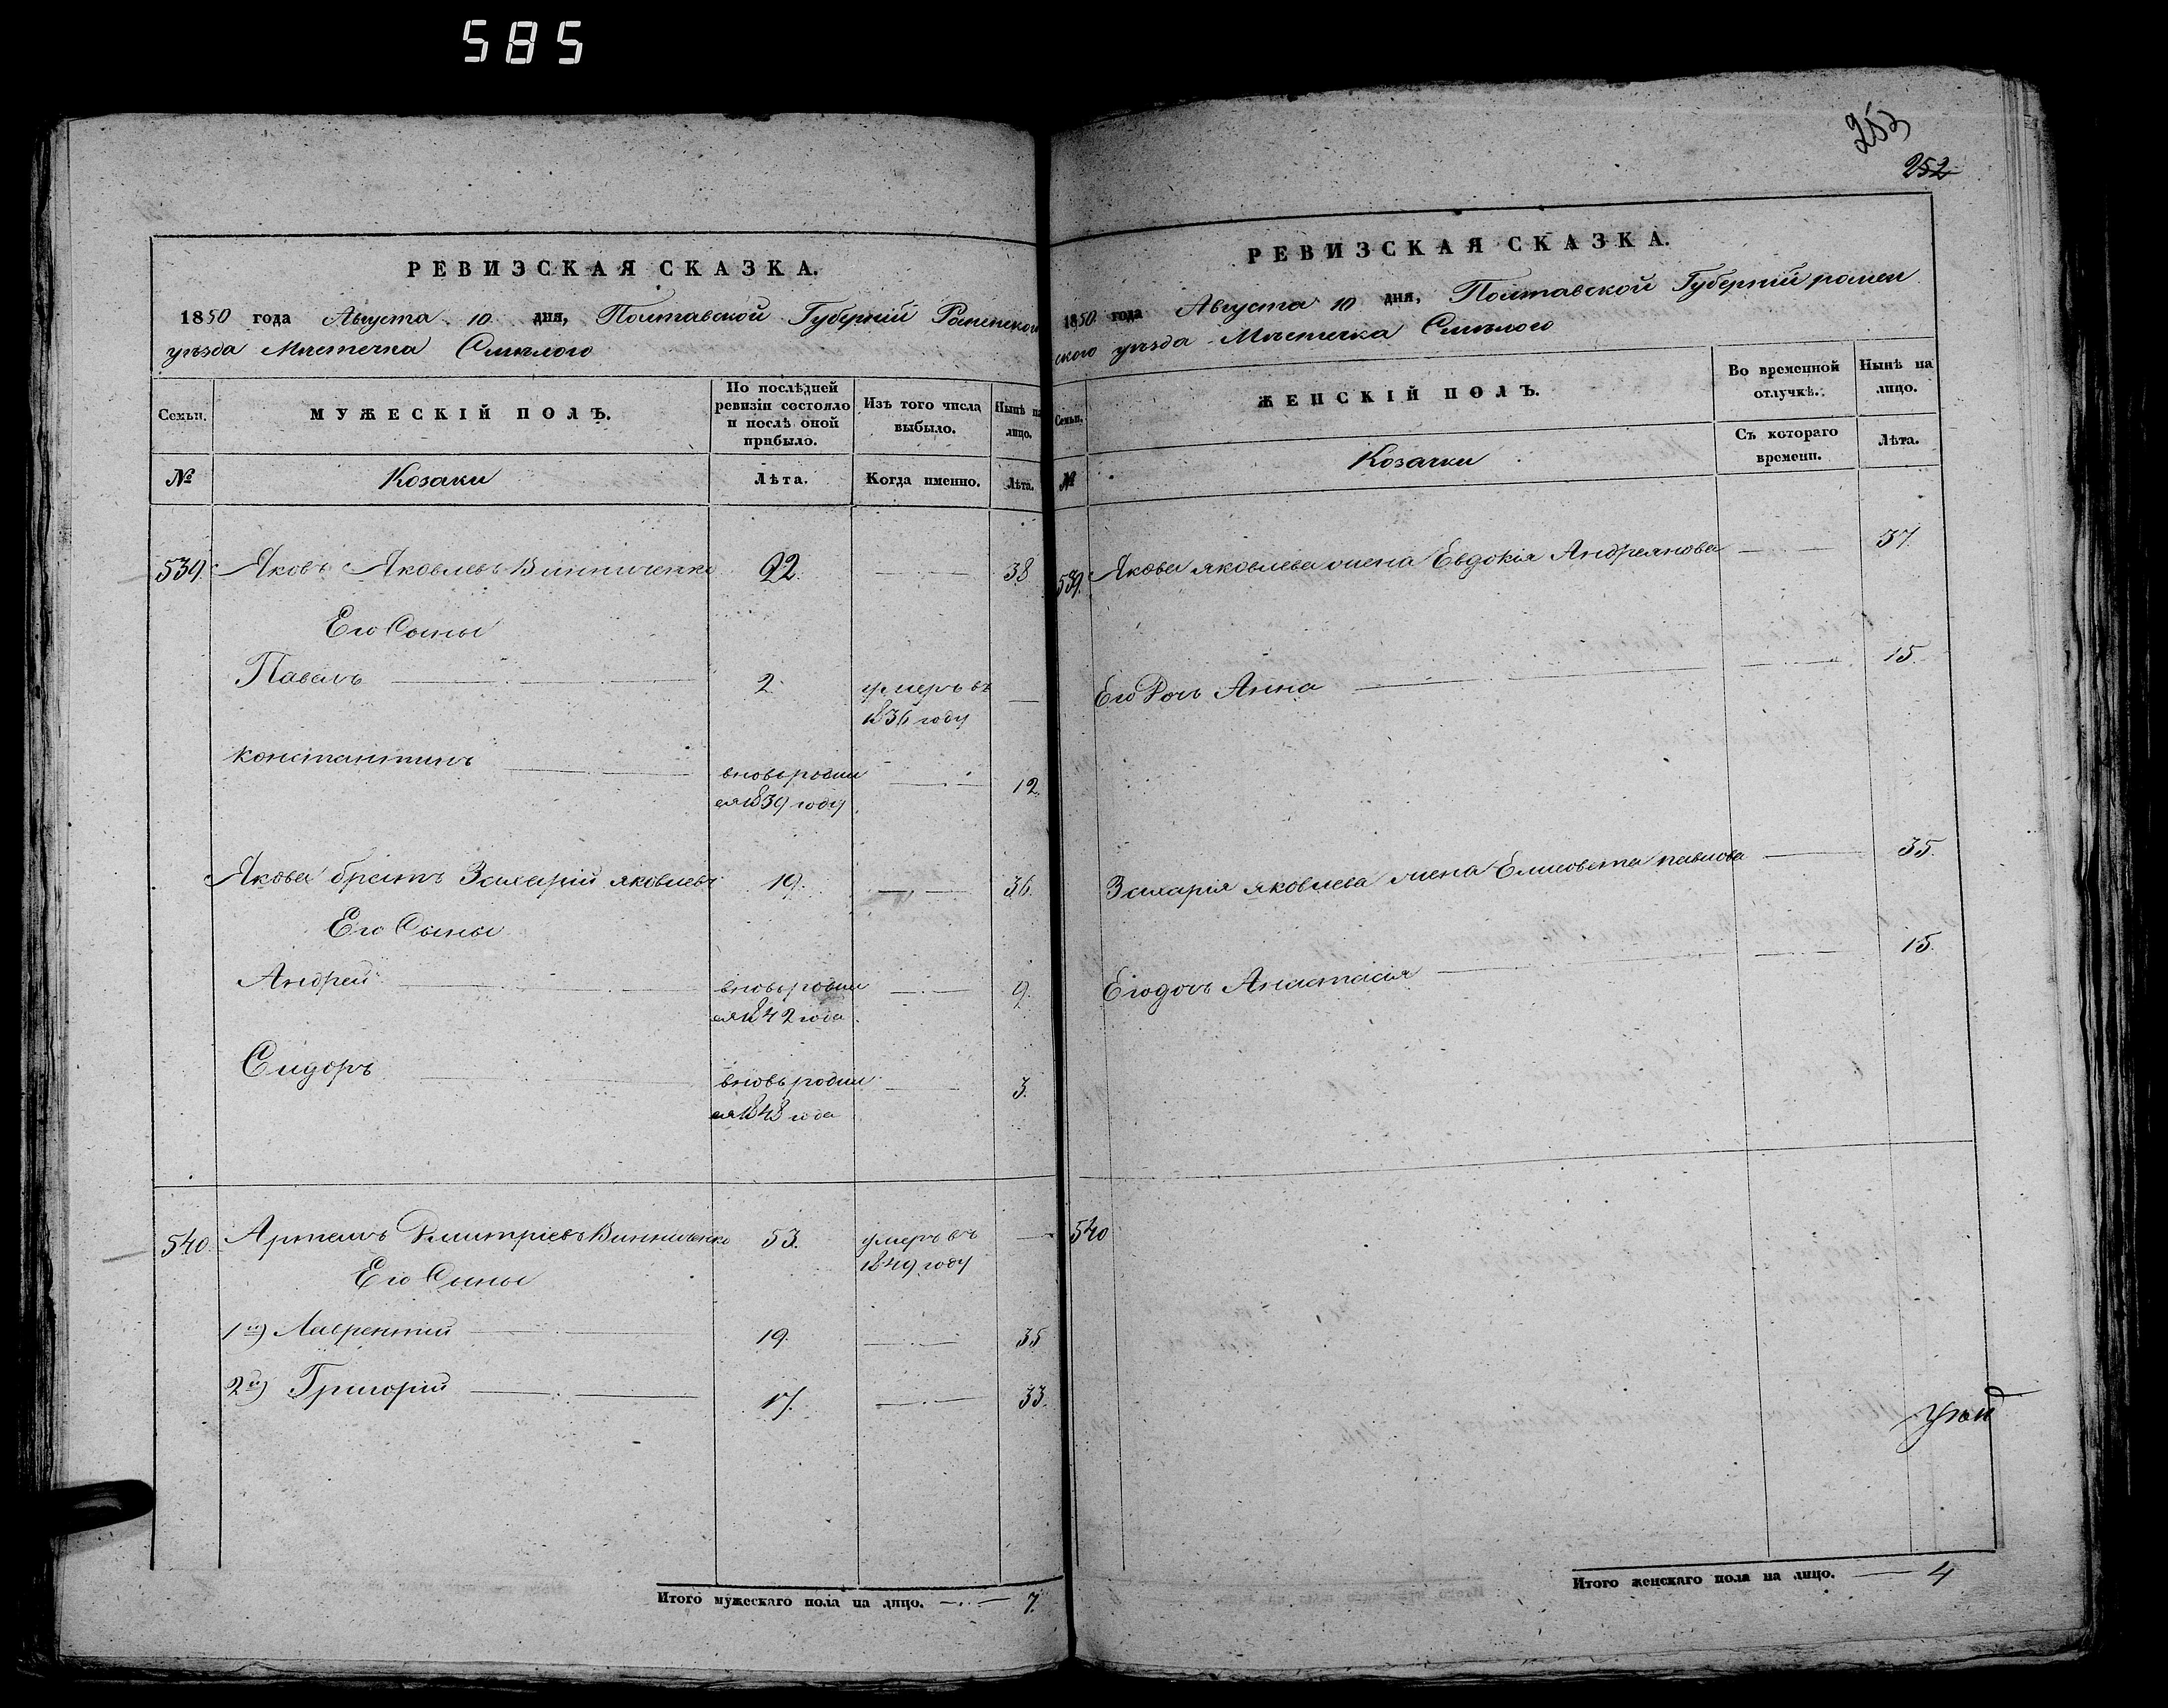 585
РЕВИЗСКАЯ СКАЗКА.
1850 года Августа 10 дня, Полтавской Губерніи Роменского
уѣзда Мѣстечка Смѣлого
Семьи.
МУЖЕСКІЙ ПОЛЪ.
По послѣдней
ревизіи состояло
и послѣ оной
прибыло.
Изъ того числа
выбыло.
Нынѣ на
лицо.
№
Козаки
Лѣта.
Когда именно.
Лѣта.
539. Яковъ Яковлевъ Винниченко 22. 38
Его Сыны
Павелъ 2. умеръ въ
1836 году
Константинъ вновь родил
ся 1839 году 12.
Якова братъ Захарій яковлевъ 19. 36.
Его Сыны
Андрей вновь родил
ся 1842 года 9.
Сидоръ вновь родил
ся 1848 года 3.
540. Артемъ Дмитріевъ Винниченко 53. умеръ въ
1849 году
Его Сыны
1й) Лаврентій 19. 35
2й) Григорій 17. 33.
Итого мужескаго пола на лицо. 7.
253
252
РЕВИЗСКАЯ СКАЗКА.
1850 года Августа 10 дня, Полтавской Губерніи ромен
ского уѣзда Мѣстечка Смѣлого
Семьи.
ЖЕНСКІЙ ПОЛЪ.
Во временной
отлучкѣ.
Нынѣ на
лицо.
№
Козачки
Съ котораго
времени.
Лѣта.
539. Якова яковлева жена Евдокія Андреянова 37.
Его Дочь Анна 15.
Захарія яковлева жена Елисовета павлова 35.
Его дочь Анастасія 15.
540
Итого женскаго пола на лицо. 4